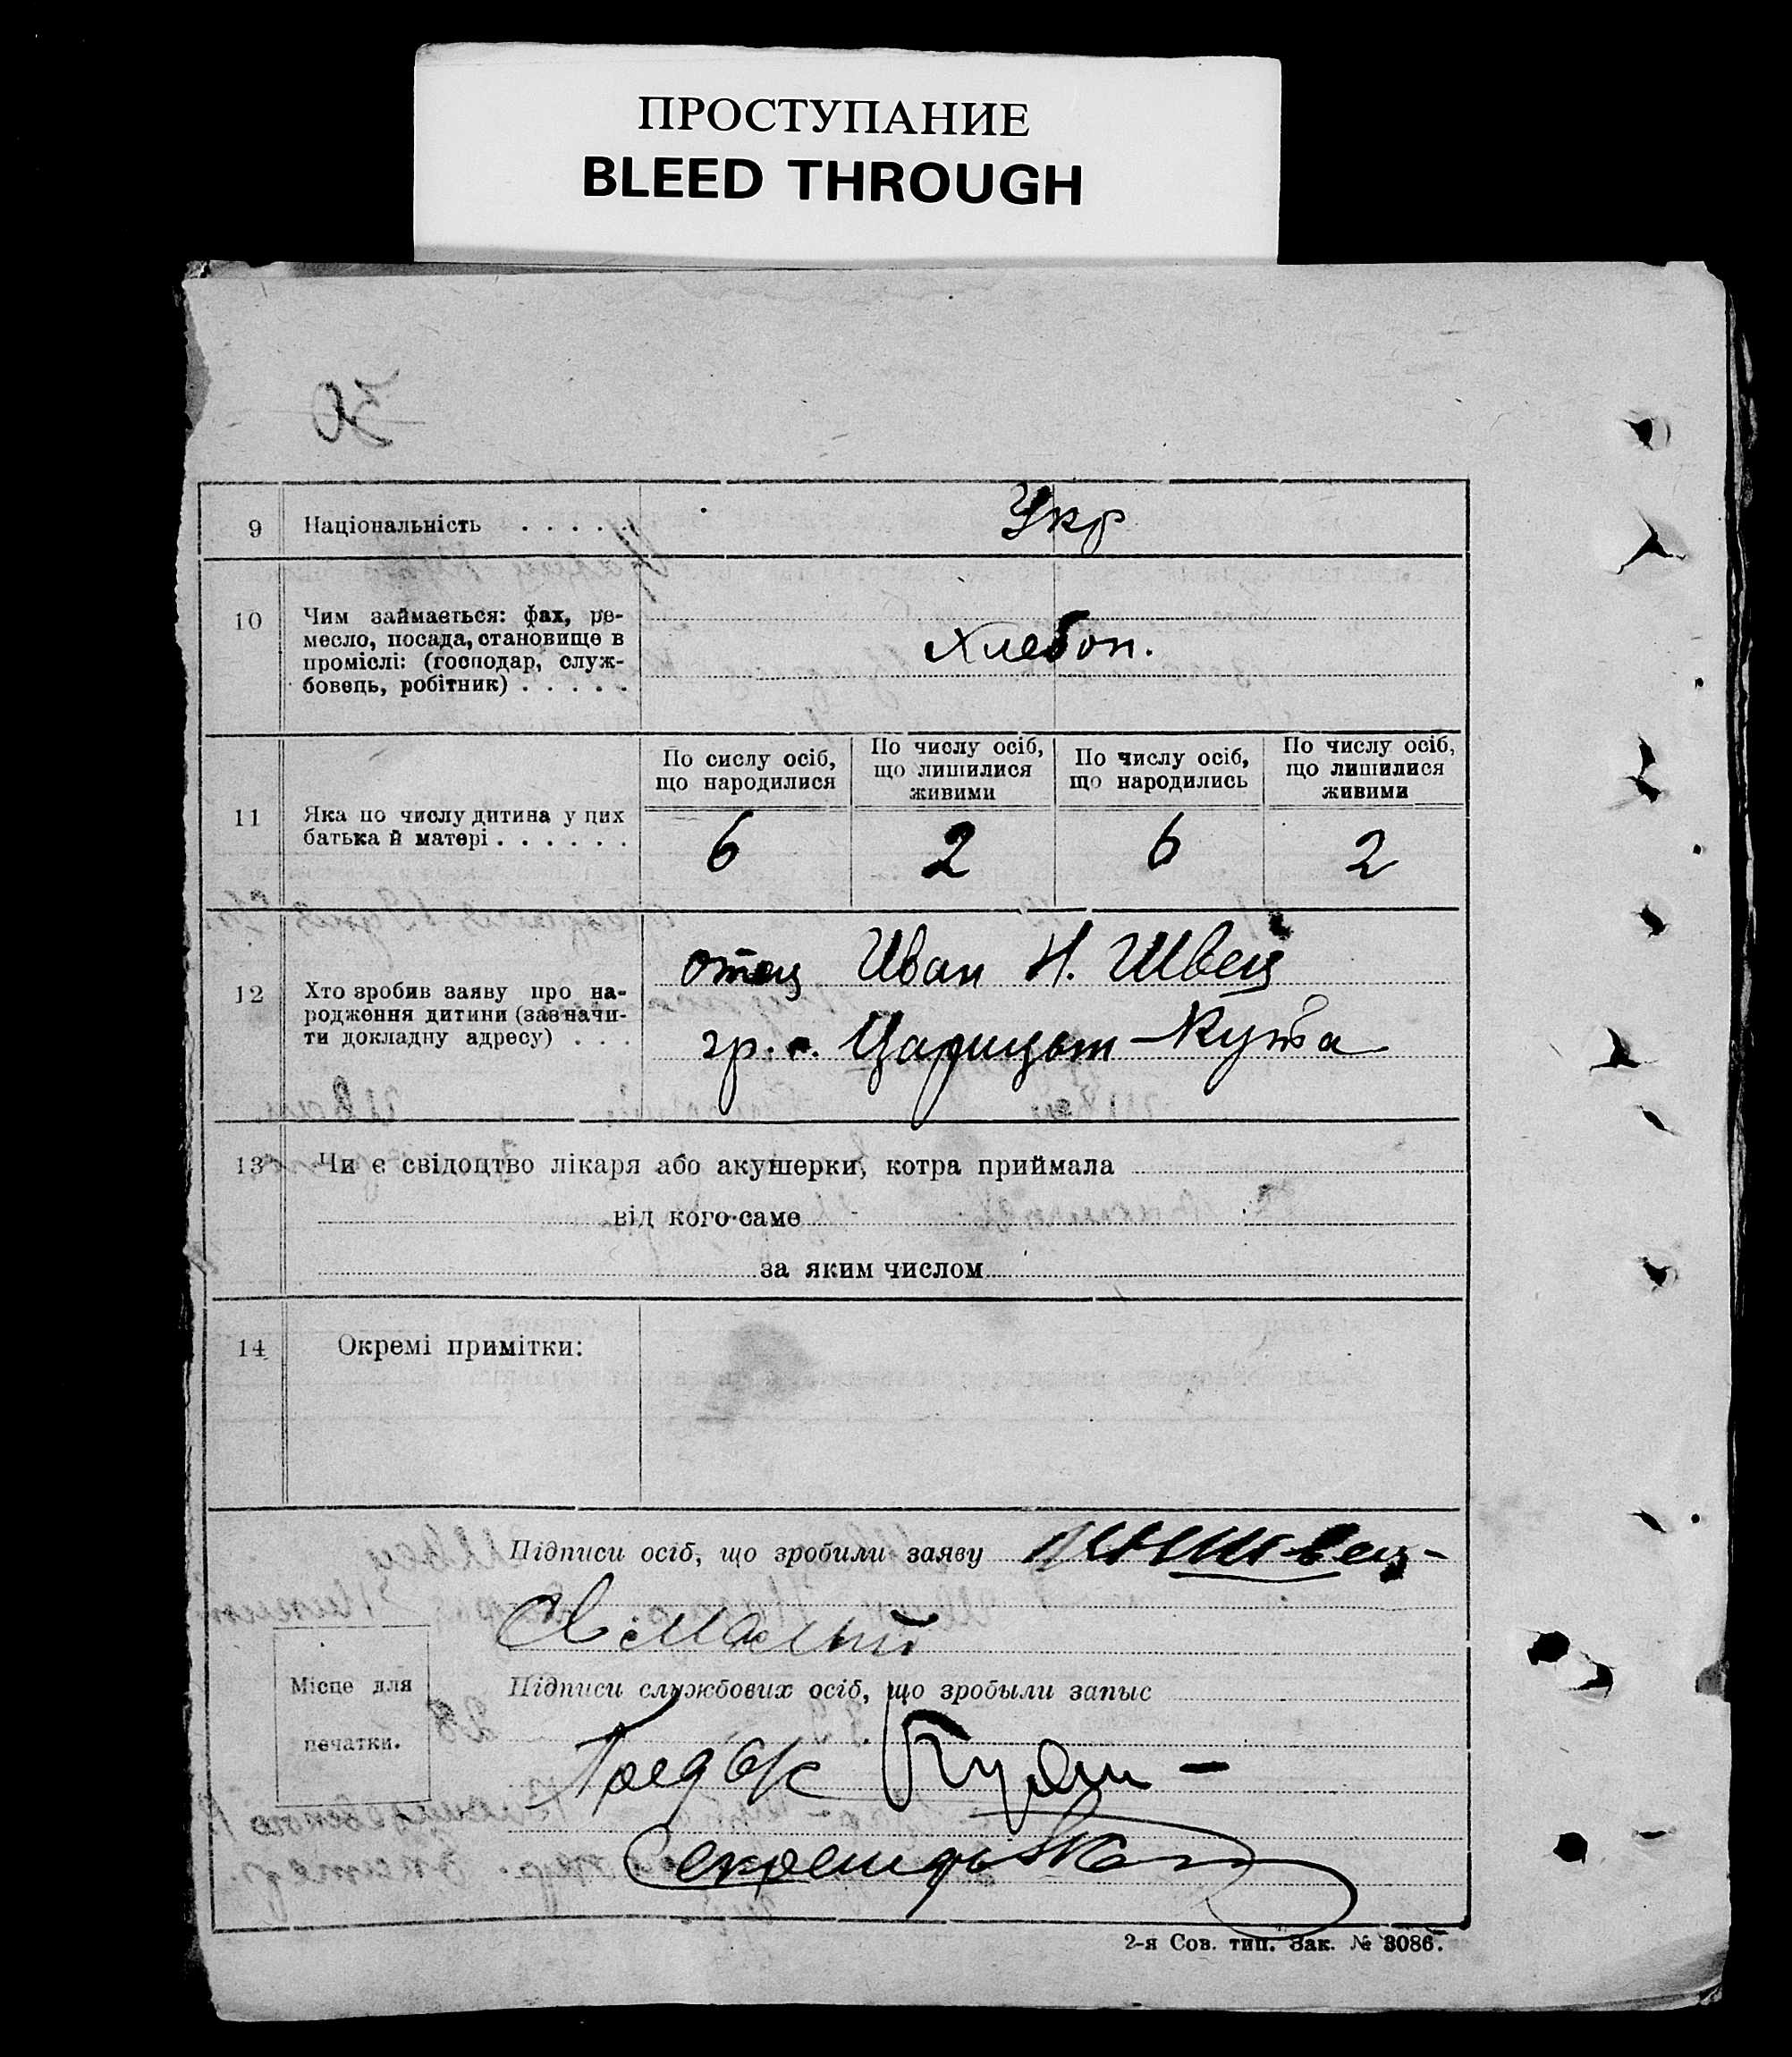 ПРОСТУПАНИЕ
BLEED THROUGH
30
9 Національність . . . . . Укр
10 Чим займається: фах, ре-
месло, посада, становище в
проміслі: (господар, служ-
бовець, робітник) . . . . .
Хлебоп.
По сислу осіб, що народилися
По числу осіб, що лишилися живими
По числу осіб, що народились
По числу осіб, що лишилися живими
11 Яка по числу дитина у цих
батька й матері . . . . . .
6 2 6 2
12 Хто зробив заяву про на-
родження дитини (зазначи-
ти докладну адресу) . . .
отец Иван Н. Швец
гр. с. Царицын-Кута
13 Чи є свідоцтво лікаря або акушерки, котра приймала
від кого-саме
за яким числом
14 Окремі примітки:
Підписи осіб, що зробили заяву Швец
Малый
Місце для
печатки.
Підписи службових осіб, що зробыли запыс
Предс/к
Секретарь
2-я Сов. тип. Зак. № 3086.